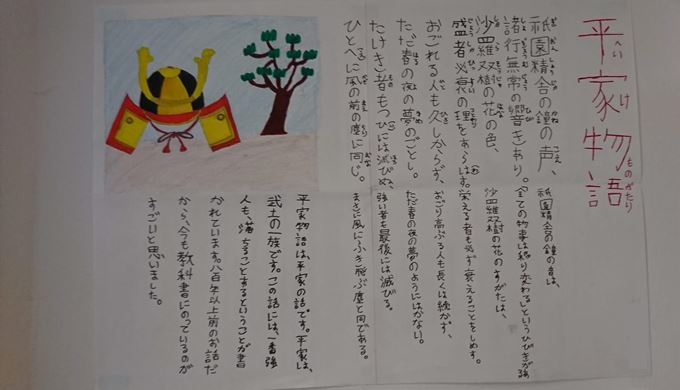 平家物語
へいけものがたり
祇園精舎の鐘の声、
諸行無常の響きあり。
沙羅双樹の花の色、
盛者必衰の理をあらはす。
おごれる人も久しからず、
ただ春の夜の夢のごとし。
たけき者もつひには滅びぬ、
ひとへに風の前の塵に同じ。
祇園精舎の鐘の音は、
全ての物事は移り変わるというひびきがある
沙羅双樹の花のすがたは、
栄える者も必ず衰えることをしめす。
おごり高ぶる人も長くは続かず、
ただ春の夜の夢のようにはかない。
強い者も最後には滅びる。
まさに風にふき飛ぶ塵と同である。
平家物語は、平家の話です。平家は、
武士の一族です。この話には、一番強
人も、落ちることするということが書
かれています。八百年以上前のお話だ
から、今も教科書にのっているのが
すごいと思いました。